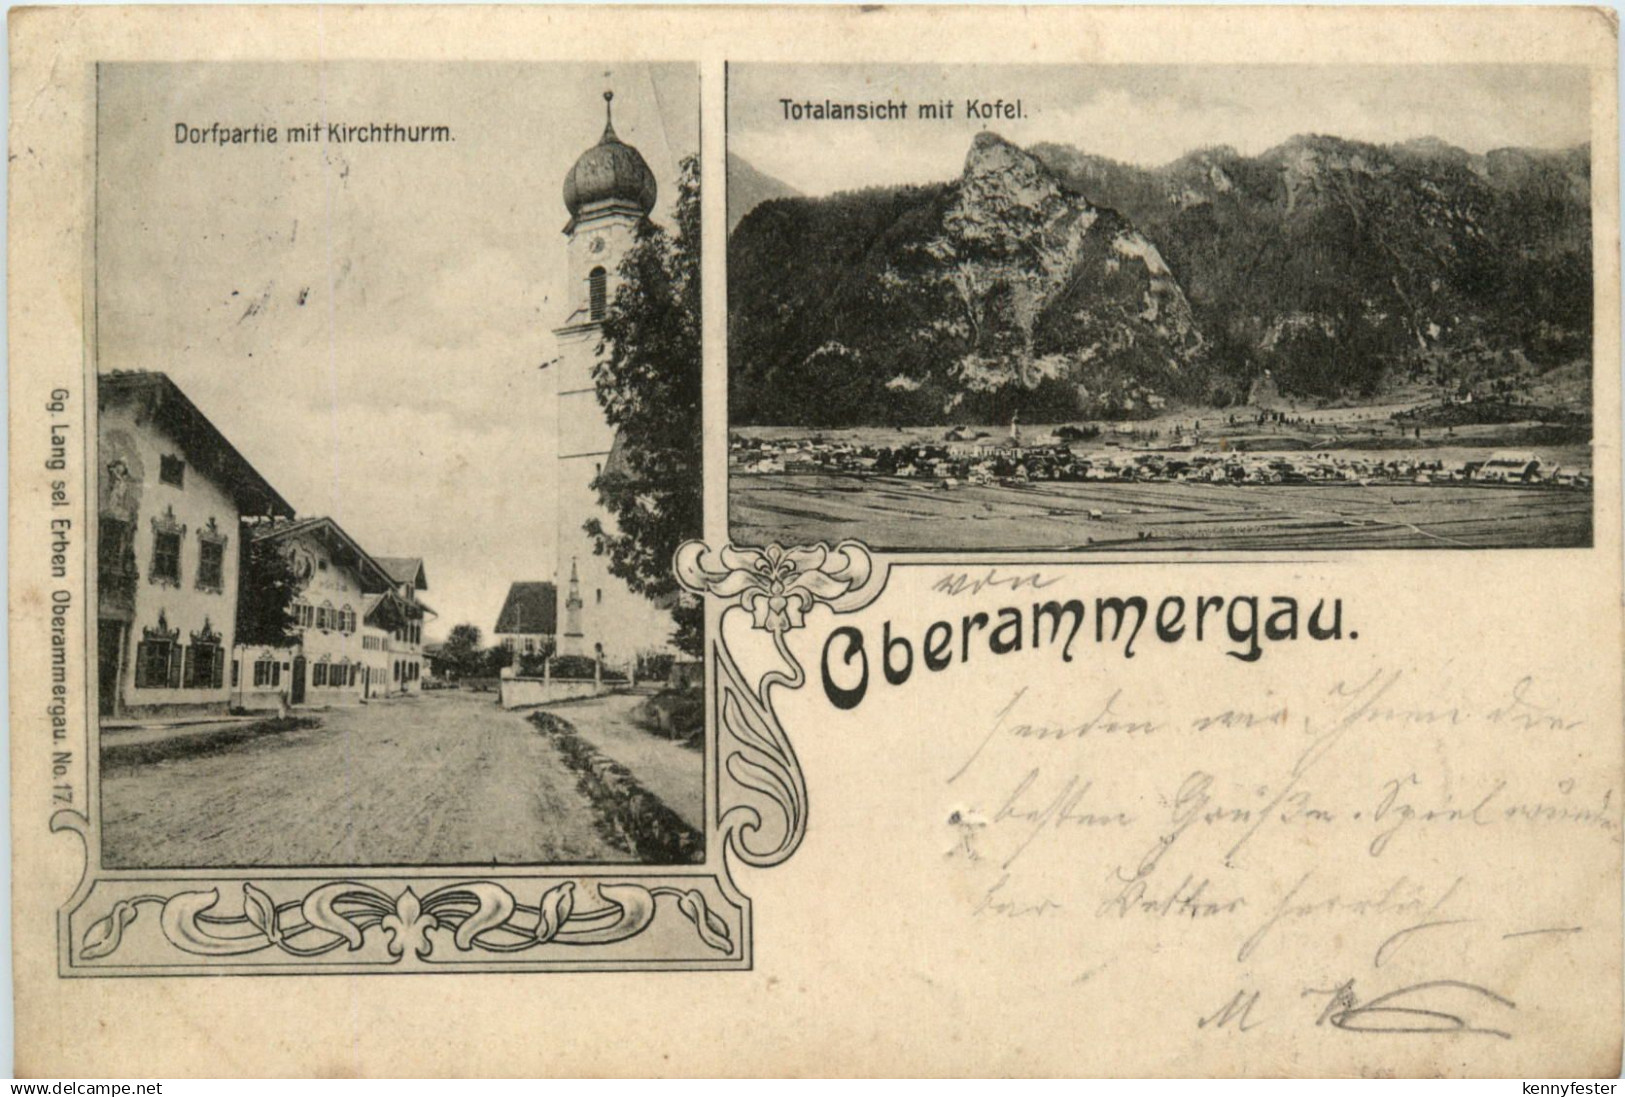 Dorfpartie mit Kirchthurm.
Totalansicht mit Kofel.
Gg. Lang sel. Erben Oberammergau. No. 17.
von
Oberammergau.
senden wir Ihnen die
besten Grüße. Spiel wunder
bar. Wetter herrlich
M
www.delcampe.net
kennyfester